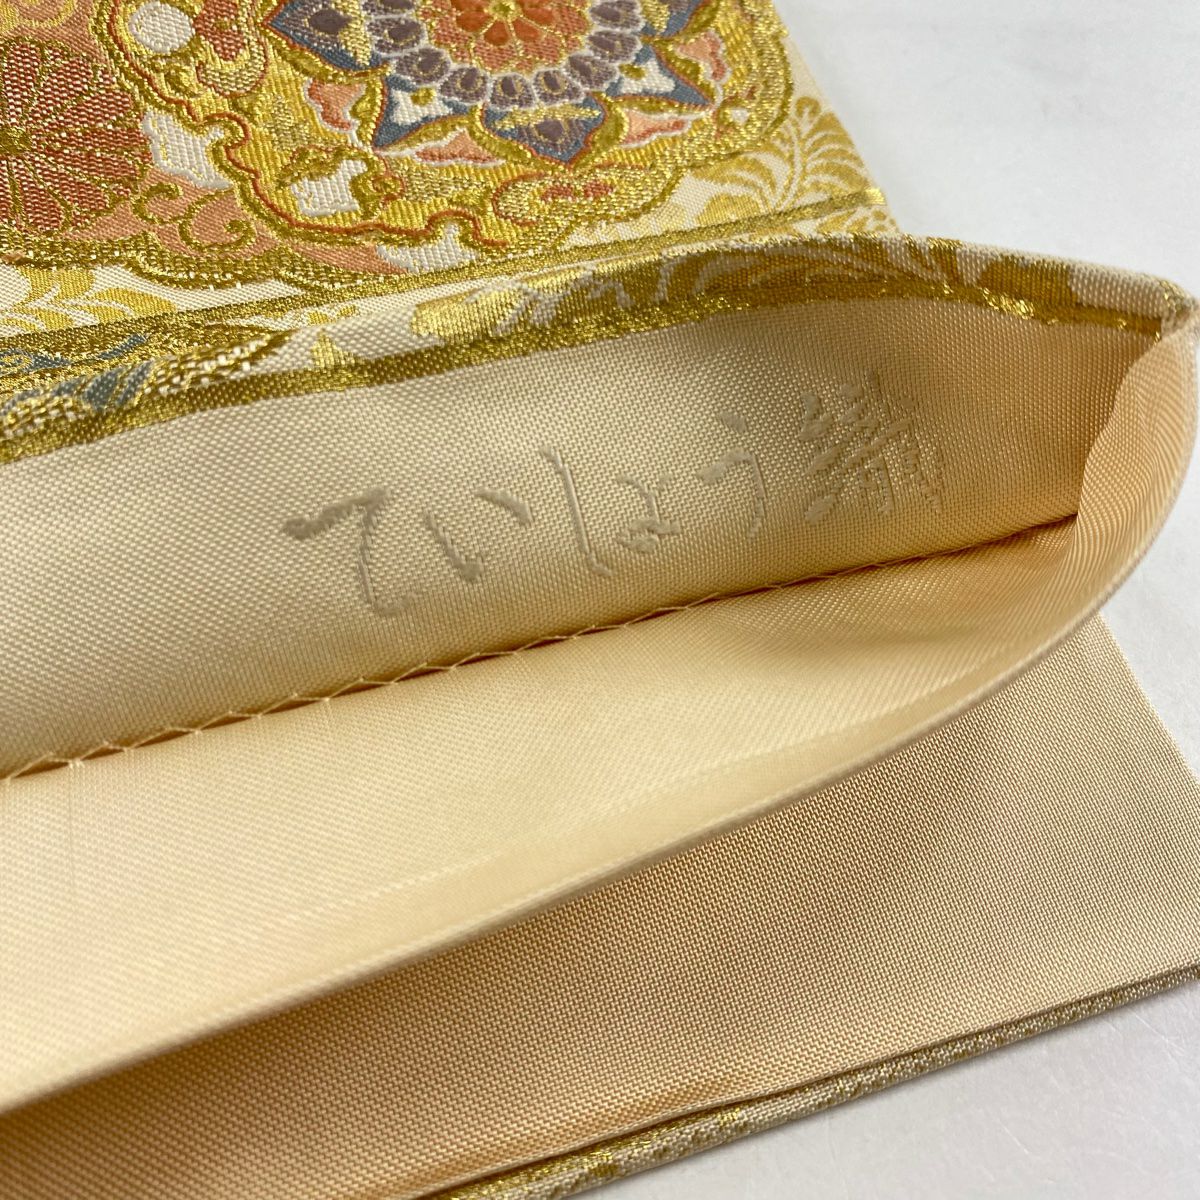 ていしょう織